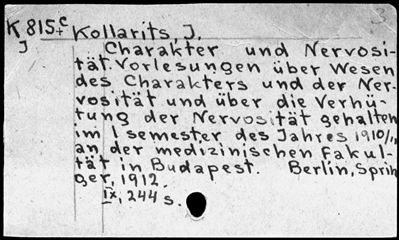 K 815 c+ Kollarits, J.
J
Charakter und Nervosi-
tät. Vorlesungen über Wesen
des Charakters und der Ner-
vosität und über die Verhü-
tung der Nervosität gehalten
im I semester des Jahres 1910/11
an der medizinischen Fakul-
tät in Budapest. Berlin, Sprin
ger, 1912.
IX, 244 s.